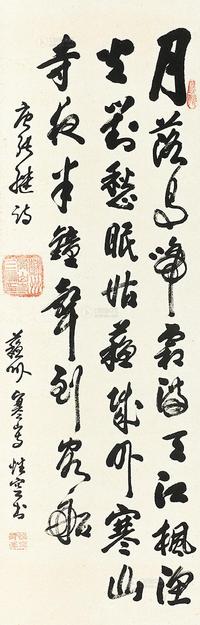 月落乌啼霜满天江枫渔
火对愁眠姑苏城外寒山
寺夜半钟声到客船
唐张继诗
苏州寒山寺性空书